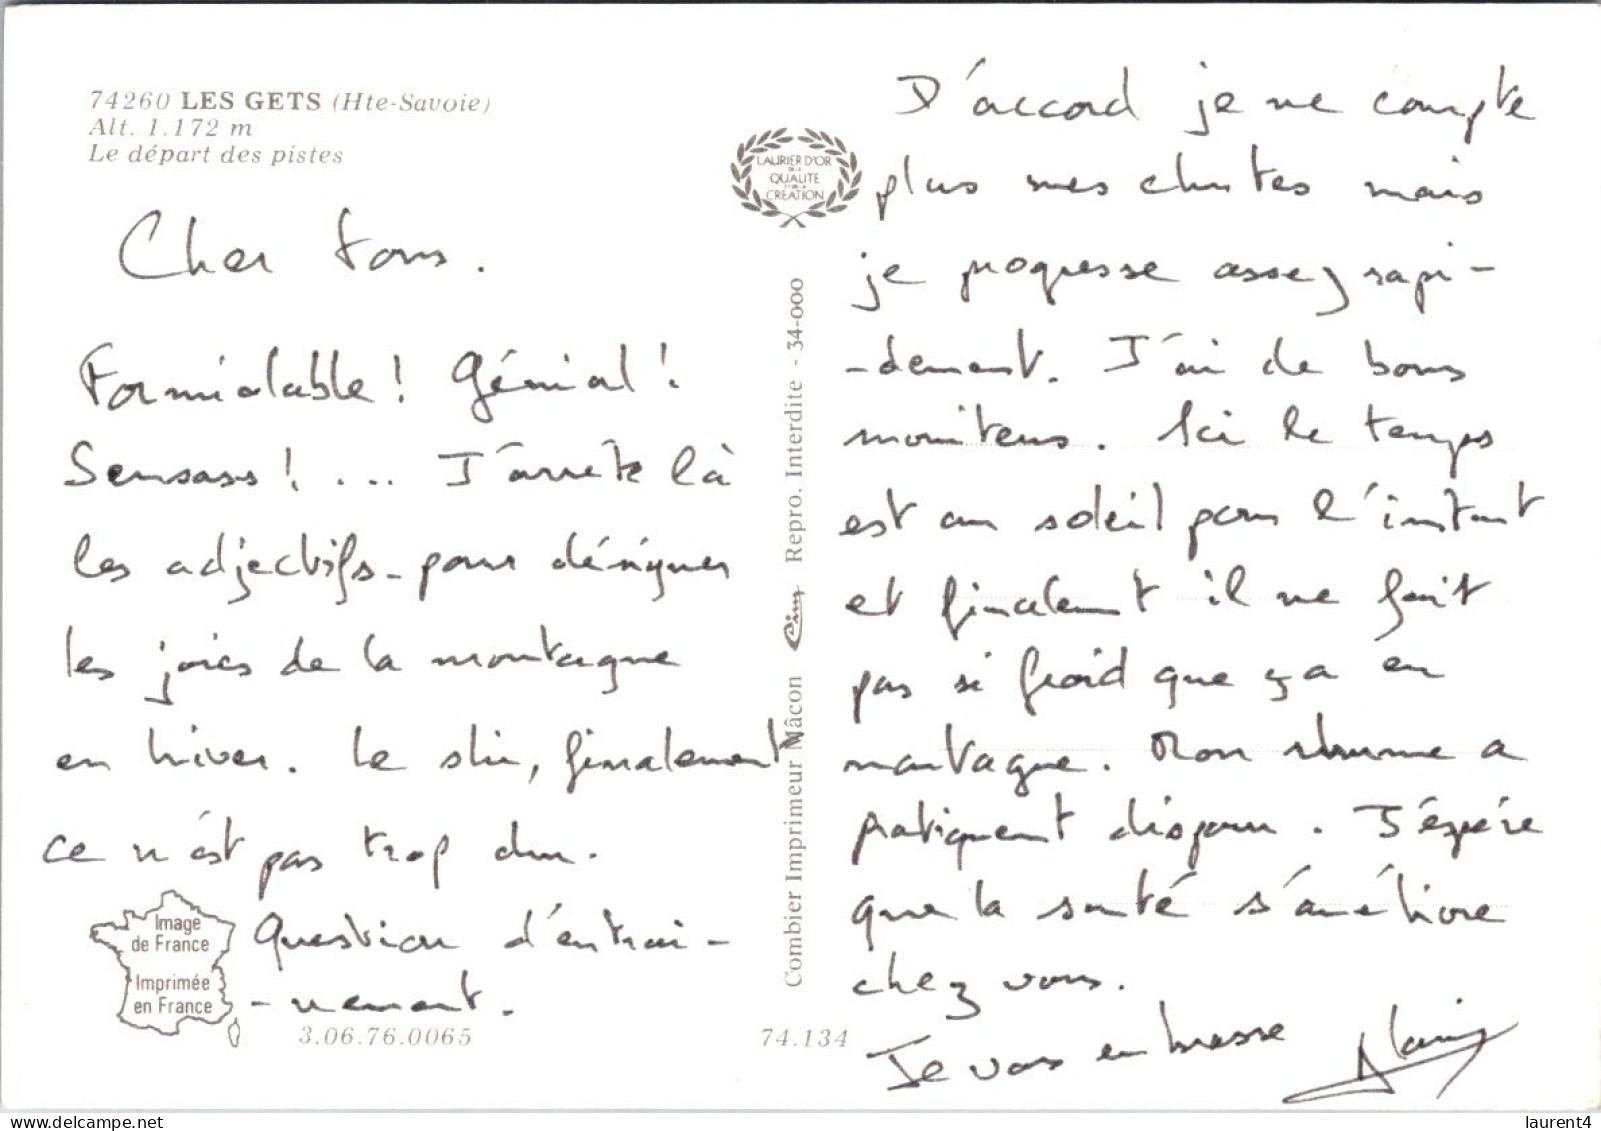 74260 LES GETS (Hte-Savoie)
Alt. 1.172 m
Le départ des pistes
Cher tous.
Formidable ! Génial !
Sensass ! ... J'arrête là
les adjectifs - pour désigner
les joies de la montagne
en hiver. Le ski, finalement
ce n'est pas trop dur.
Question d'entrai-
-nement.
Image
de France
Imprimée
en France
3.06.76.0065
LAURIER D'OR
DE LA
QUALITE
ET DE LA
CREATION
Combier Imprimeur Mâcon Cim Repro. Interdite - 34-000
74.134
D'accord je ne compte
plus mes chutes mais
je progresse assez rapi-
-dement. J'ai de bons
moniteurs. Ici le temps
est au soleil pour l'instant
et finalement il ne fait
pas si froid que ça en
montagne. Mon rhume a
pratiquement disparu. J'espère
que la santé s'améliore
chez vous.
Je vous embrasse Alain
laurent4